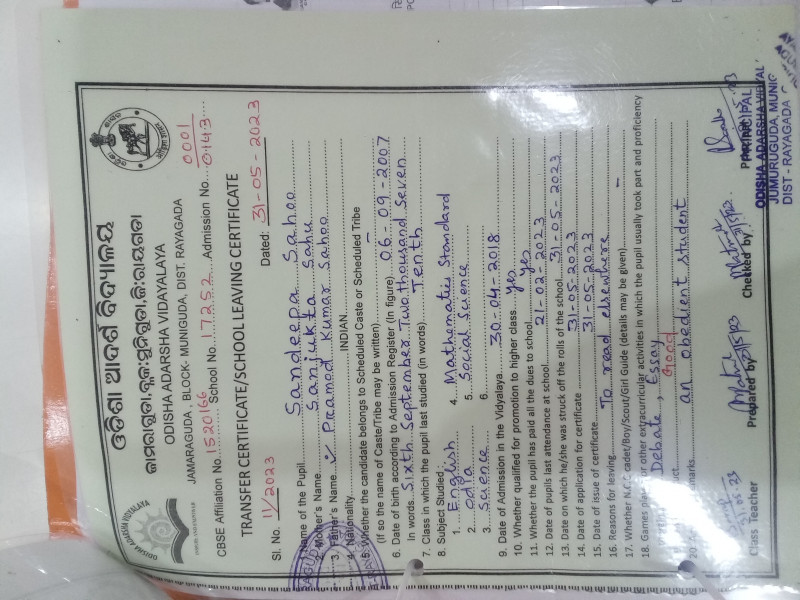 ଓଡିଶା ଆଦର୍ଶ ବିଦ୍ୟାଳୟ
ODISHA ADARSHA VIDYALAYA
JAMARAGUDA , BLOCK- MUNIGUDA, DIST. RAYAGADA
0001
CBSE Affiliation No. 1520166 School No. 17252 Admission No. 0143
TRANSFER CERTIFICATE/SCHOOL LEAVING CERTIFICATE
Sl. No. 11/2023 Dated: 31-05-2023
Name of the Pupil Sandeepa Sahoo
Mother's Name Sanjukta Sahu
3. Father's Name Pramod Kumar Sahoo
4. Nationality INDIAN
5. Whether the candidate belongs to Scheduled Caste or Scheduled Tribe
(If so the name of Caste/Tribe may be written) –
6. Date of birth according to Admission Register (In figure) 06-09-2007
In words Sixth September Two thousand Seven
7. Class in which the pupil last studied (in words) Tenth
8. Subject Studied :
1. English 4. Mathematics Standard
2. Odia 5. Social Science
3. Science 6.
9. Date of Admission in the Vidyalaya 30-04-2018
10. Whether qualified for promotion to higher class yes
11. Whether the pupil has paid all the dues to school yes
12. Date of pupils last attendance at school 21-02-2023
13. Date on which he/she was struck off the rolls of the school 31-05-2023
14. Date of application for certificate 31-05-2023
15. Date of issue of certificate 31-05-2023
16. Reasons for leaving To read elsewhere
17. Whether N.C.C cadet/Boy/Scout/Girl Guide (details may be given) –
18. Games played or other extracurricular activities in which the pupil usually took part and proficiency
Debate, Essay
Good
20. an obedient student
31.05.23
Class Teacher Prepared by Checked by PRINCIPAL
ODISHA ADARSHA VIDYAL
JUMURUGUDA, MUNIG
DIST - RAYAGADA